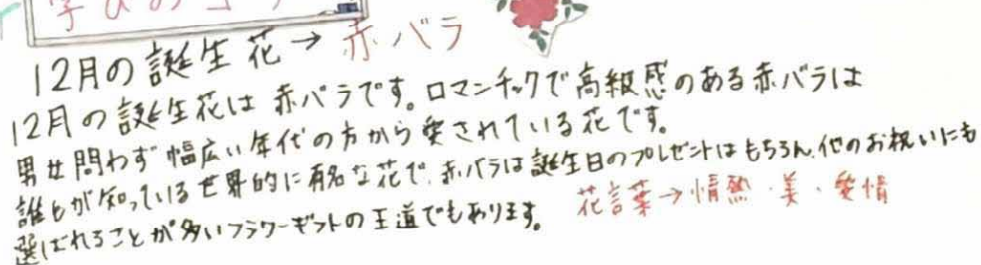 学びのコ
12月の誕生花→赤バラ
12月の誕生花は赤バラです。ロマンチックで高級感のある赤バラは
男女問わず幅広い年代の方から愛されている花です。
誰もが知っている世界的に有名な花で、赤バラは誕生日のプレゼントはもちろん、他のお祝いにも
選ばれることが多いフラワーギフトの王道でもあります。
花言葉→情熱・美・愛情